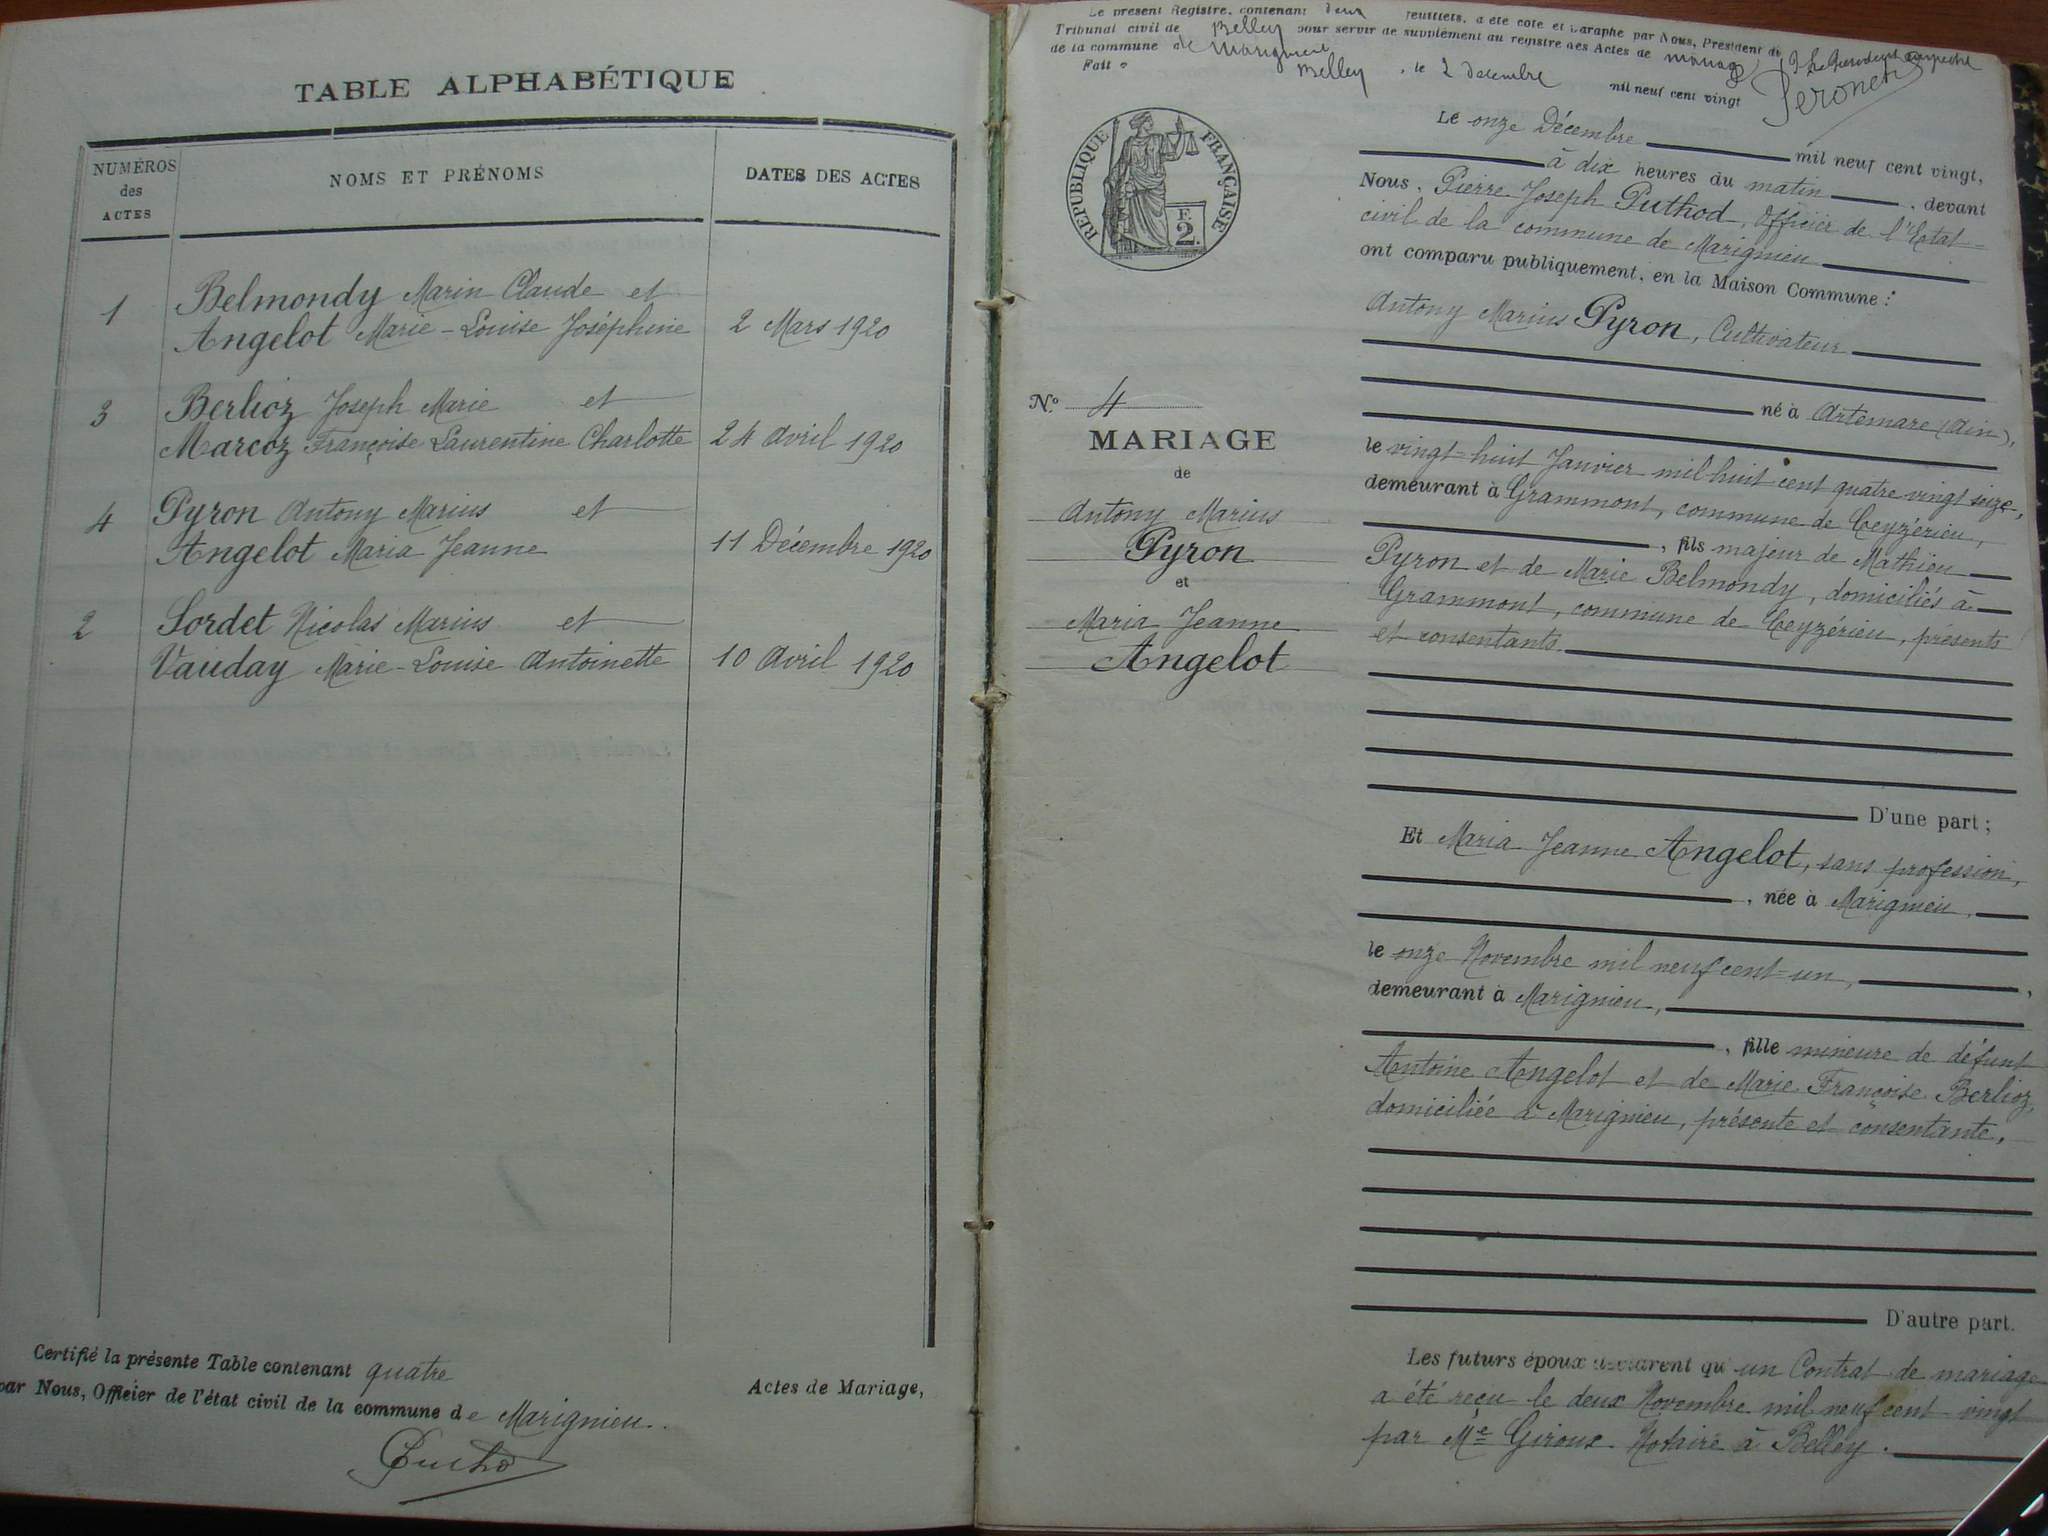 TABLE ALPHABÉTIQUE
NUMÉROS
des
ACTES
NOMS ET PRÉNOMS
DATES DES ACTES
1
Belmondy Marin Claude et
Angelot Marie-Louise Joséphine
2 Mars 1920
3
Berlioz Joseph Marie et
Marcoz Françoise Laurentine Charlotte
24 Avril 1920
4
Pyron Antony Marius et
Angelot Maria Jeanne
11 Décembre 1920
2
Sordet Nicolas Marius et
Vauday Marie-Louise Antoinette
10 Avril 1920
Certifié la présente Table contenant quatre Actes de Mariage,
par Nous, Officier de l'état civil de la commune de Marignieu.
Le présent Registre, contenant deux feuillets, a été coté et paraphé par Nous, Président du
Tribunal civil de Belley pour servir de supplément au registre des Actes de mariage
de la commune de Marignieu
Fait à Belley, le 2 décembre mil neuf cent vingt
RÉPUBLIQUE FRANÇAISE
F.
2.
Le onze Décembre mil neuf cent vingt,
à dix heures du matin, devant
Nous, Pierre Joseph Puthod, Officier de l'Etat-
civil de la commune de Marignieu
ont comparu publiquement, en la Maison Commune :
Antony Marius Pyron, Cultivateur
né à Artemare (Ain),
le vingt-huit Janvier mil huit cent quatre vingt seize,
demeurant à Grammont, commune de Ceyzérieu,
, fils majeur de Mathieu
Pyron et de Marie Belmondy, domiciliés à
Grammont, commune de Ceyzérieu, présents
et consentants.
D'une part ;
N.º 4
MARIAGE
de
Antony Marius
Pyron
et
Maria Jeanne
Angelot
Et Maria Jeanne Angelot, sans profession,
, née à Marignieu,
le onze Novembre mil neuf cent-un,
demeurant à Marignieu,
, fille mineure de défunt
Antoine Angelot et de Marie Françoise Berlioz,
domiciliée à Marignieu, présente et consentante,
D'autre part.
Les futurs époux déclarent qu'un Contrat de mariage
a été reçu le deux Novembre mil neuf cent vingt
par Me Giroux Notaire à Belley.